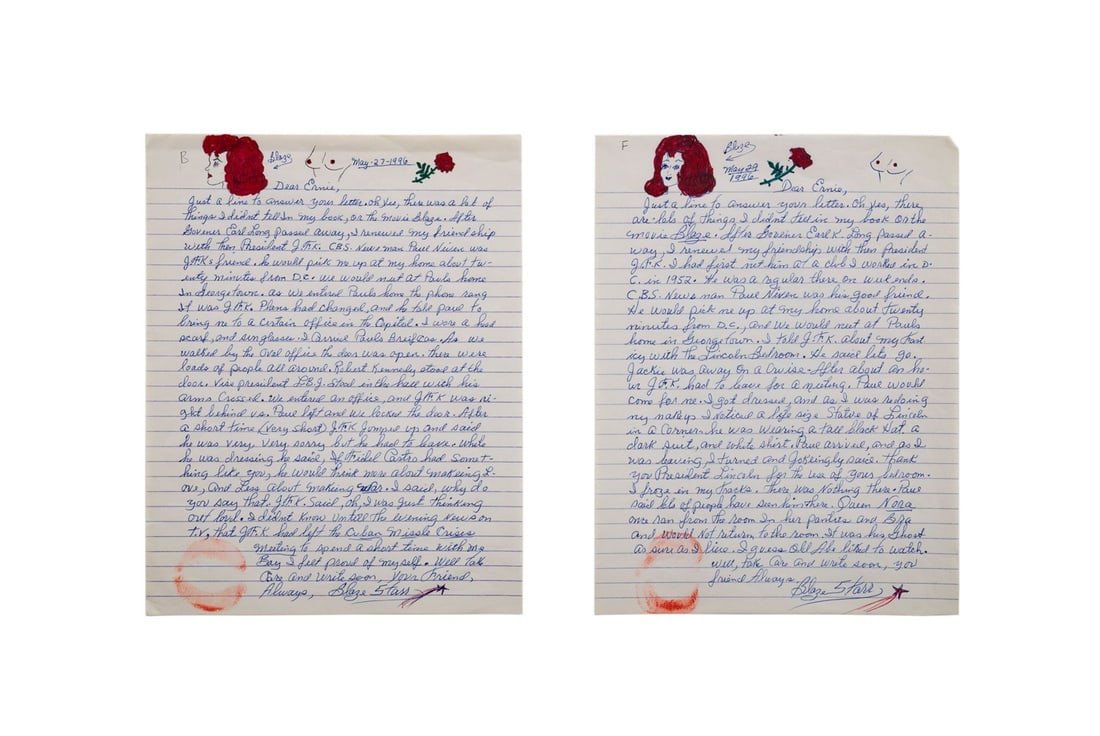 B
Blaze
May-27-1996
Dear Ernie,
Just a line to answer your letter. Oh yes, there was a lot of
things I didn't tell In my book, or the movie Blaze. After
Govener Earl Long passed away, I renewed my friendship
with then President J.F.K. CBS. News man Paul Niven was
J.F.K.s friend. he would pick me up at my home about tw-
enty minutes from D.C. we would meet at Pauls home
In Georgetown. as we entered Pauls home the phone rang
It was J.F.K. Plans had changed, and he told paul to
bring me to a certain office in the Capitol. I wore a head
scarf, and sunglasses. I carried Pauls Breifcas. As we
walked by the oval office the door was open. there were
loads of people all around. Robert Kennedy stood at the
door. Vise president L.B.J. stood in the hall with his
arms Crossed. We entered an office, and J.F.K was ri-
ght behind us. Paul left and we locked the door. After
a short time (very short) J.F.K Jomped up and said
he was very, very sorry but he had to leave. While
he was dressing he said, If Fidel Castro had somet-
hing like you, he would think more about makeing L-
ove, and Less about making war. I said, why do
you say that. J.F.K. said, oh, I was Just thinking
out loud. I didn't know untill the evening news on
T.V. that J.F.K had left the Cuban Missle Crises
Meeting to spend a short time with me
Boy I felt proud of myself. Well Take
Care and write soon, Your Friend,
Always, Blaze Starr
F
Blaze
May 29
1996
Dear Ernie,
Just a line to answer your letter. Oh yes, there
are lots of things I didn't tell in my book or the
movie Blaze. After Govener Earl K. Long passed a-
way, I renewed my friendship with then President
J.F.K. I had first met him at a club I worked in D.
C. in 1952. He was a regular there on week ends.
C.B.S. News man Paul Niven was his good friend.
He would pick me up at my home about Twenty
minutes from D.C., and we would meet at Pauls
home in Georgetown. I told J.F.K. about my fant
icy with the Lincoln Bedroom. He said lets go.
Jackie was away on a Cruise. After about an ho-
ur J.F.K. had to leave for a meeting. Paul would
come for me. I got dressed, and as I was redoing
my makeup I noticed a life size Statue of Lincoln
in a Corner. he was wearing a tall black Hat. a
dark suit, and white shirt. Paul arrived, and as I
was leaving, I turned and Jokeingly said. thank
you President Lincoln for the use of your bedroom.
I froze in my tracks. There was Nothing there. Paul
said lots of people have seen him there. Queen Nora
one ran from the room In her panties and Bra
and would Not return to the room. It was his Ghost
as sure as I live. I guess Old Abe liked to watch.
Well, take care and write soon, you
friend Always.
Blaze Starr